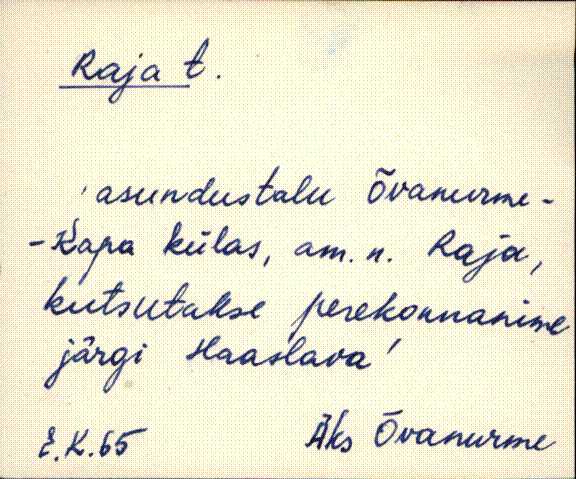 Raja t.
'asundustalu Õvanurme-
-Kapa külas, am. n. Raja,
kutsutakse perekonnanime
järgi Haaslava'
E.K.65 Äks Õvanurme